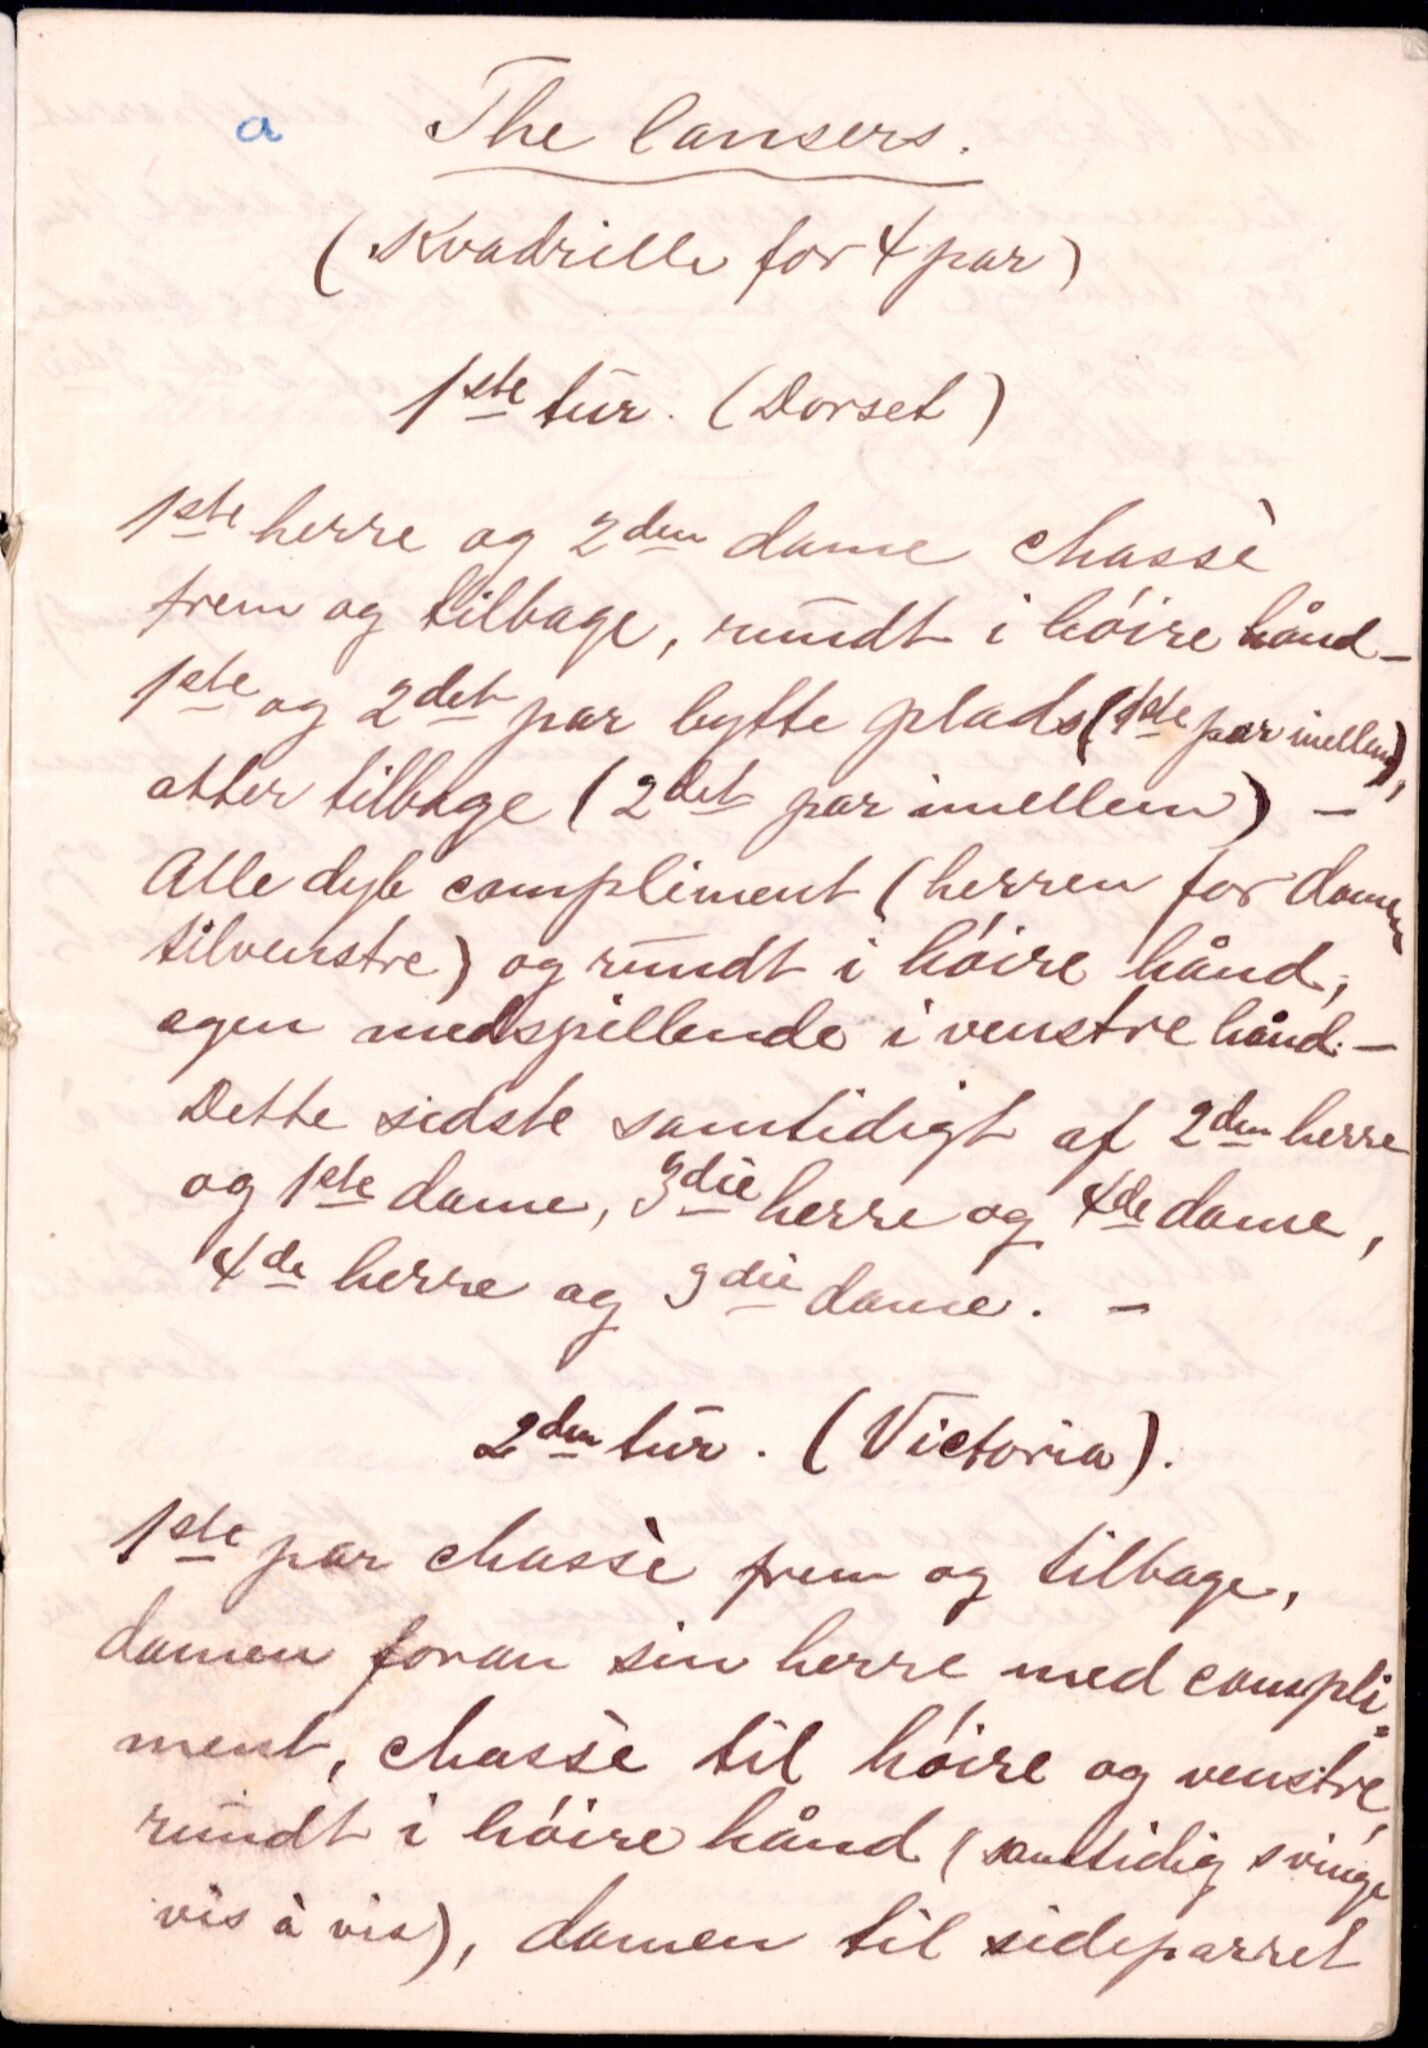 a The lansers.
(Kvadrille for 4 par)
1ste tur. (Dorset)
1ste herre og 2den dame chassè
frem og tilbage, rundt i høire hånd –
1ste og 2det par bytte plads (1ste par imellem),
atter tilbage (2det par imellem) –
Alle dyb compliment (herren for damen
tilvenstre) og rundt i høire hånd,
egen medspillende i venstre hånd. –
Dette sidste samtidigt af 2den herre
og 1ste dame, 3die herre og 4de dame,
4de herre og 3die dame. –
2den tur. (Victoria).
1ste par chassè frem og tilbage,
damen foran sin herre med compli=
ment, chassè til høire og venstre,
rundt i høire hånd (samtidig svinge
vis à vis), damen til sideparret